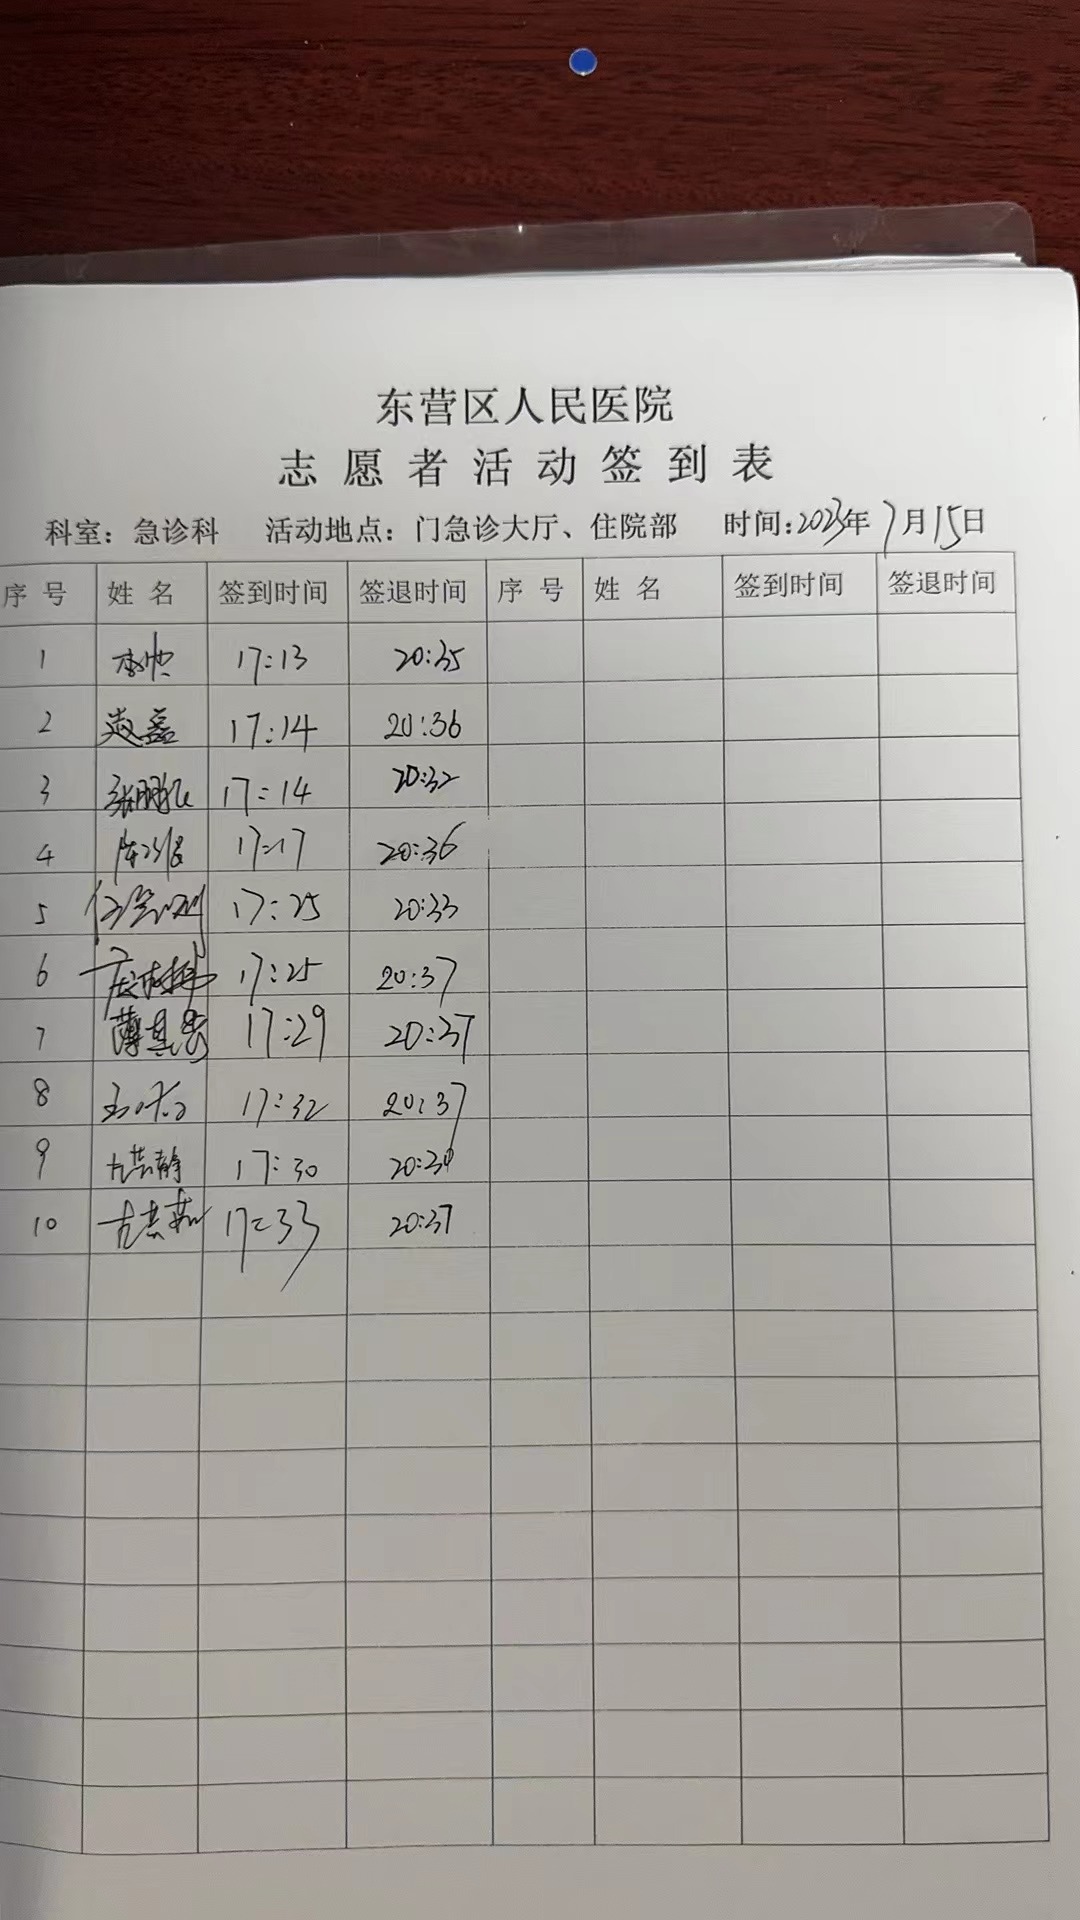 东营区人民医院
志愿者活动签到表
科室：急诊科 活动地点：门急诊大厅、住院部 时间：2023年7月15日
序号 姓名 签到时间 签退时间 序号 姓名 签到时间 签退时间
1 李帅 17:13 20:35
2 赵磊 17:14 20:36
3 张鹏飞 17:14 20:32
4 17:17 20:36
5 17:25 20:33
6 17:25 20:37
7 17:29 20:37
8 17:32 20:37
9 17:30
10 17:33 20:37